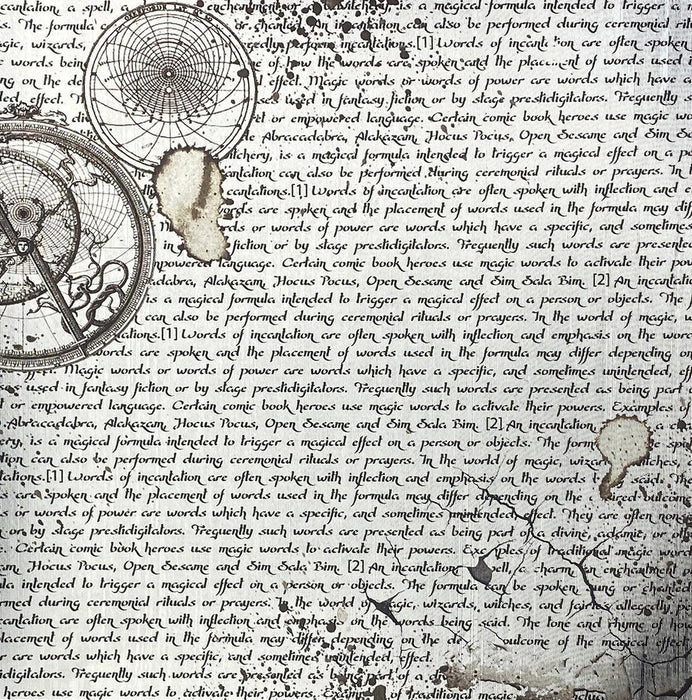 cantation, a spell, enchantment or witchery, is a magical formula intended to trigger a m
s. The formula or chanted. An incantation can also be performed during ceremonial ritu
agic, wizards, allegedly perform incantations.[1] Words of incantation are often spoken
e words being of how the words are spoken and the placement of words used i
ng on the de effect. Magic words or words of power are words which have a
ded, effect. used in fantasy fiction or by stage prestidigitators. Frequently s
di or empowered language. Certain comic book heroes use magic wo
Abracadabra, Alakazam, Hocus Pocus, Open Sesame and Sim Sa
itchery, is a magical formula intended to trigger a magical effect on a pe
cantation can also be performed during ceremonial rituals or prayers. In t
cantations.[1] Words of incantation are often spoken with inflection and e
words are spoken and the placement of words used in the formula may diff
rds or words of power are words which have a specific, and sometimes
in fiction or by stage prestidigitators. Frequently such words are presented
mpowered language. Certain comic book heroes use magic words to activate their pow
adabra, Alakazam, Hocus Pocus, Open Sesame and Sim Sala Bim. [2] An incantatio
is a magical formula intended to trigger a magical effect on a person or objects. The f
can also be performed during ceremonial rituals or prayers. In the world of magic, w
tations.[1] Words of incantation are often spoken with inflection and emphasis on the word
words are spoken and the placement of words used in the formula may differ depending on
Magic words or words of power are words which have a specific, and sometimes unintended, eff
so used in fantasy fiction or by stage prestidigitators. Frequently such words are presented as being part
or empowered language. Certain comic book heroes use magic words to activate their powers. Examples of
Abracadabra, Alakazam, Hocus Pocus, Open Sesame and Sim Sala Bim. [2] An incantation, a cha
ery, is a magical formula intended to trigger a magical effect on a person or objects. The form be spo
tion can also be performed during ceremonial rituals or prayers. In the world of magic, wizar itches,
tations.[1] Words of incantation are often spoken with inflection and emphasis on the words b said. The
are spoken and the placement of words used in the formula may differ depending on the sired outcome
s or words of power are words which have a specific, and sometimes unintended, effect. They are often non
n or by stage prestidigitators. Frequently such words are presented as being part of a divine, adamic, or oth
e. Certain comic book heroes use magic words to activate their powers. Examples of traditional magic word
am, Hocus Pocus, Open Sesame and Sim Sala Bim. [2] An incantation, spell, a charm, an enchantment
la intended to trigger a magical effect on a person or objects. The formula can be spoken, sung or chanted
rmed during ceremonial rituals or prayers. In the world of magic, wizards, witches, and fairies allegedly pe
cantation are often spoken with inflection and emphasis on the words being said. The tone and rhyme of how
lacement of words used in the formula may differ depending on the de outcome of the magical effect
er are words which have a specific, and sometimes unintended, effect.
stidigitators. Frequently such words are presented as being part of a di
heroes use magic words to activate their powers. Examp of traditional magic